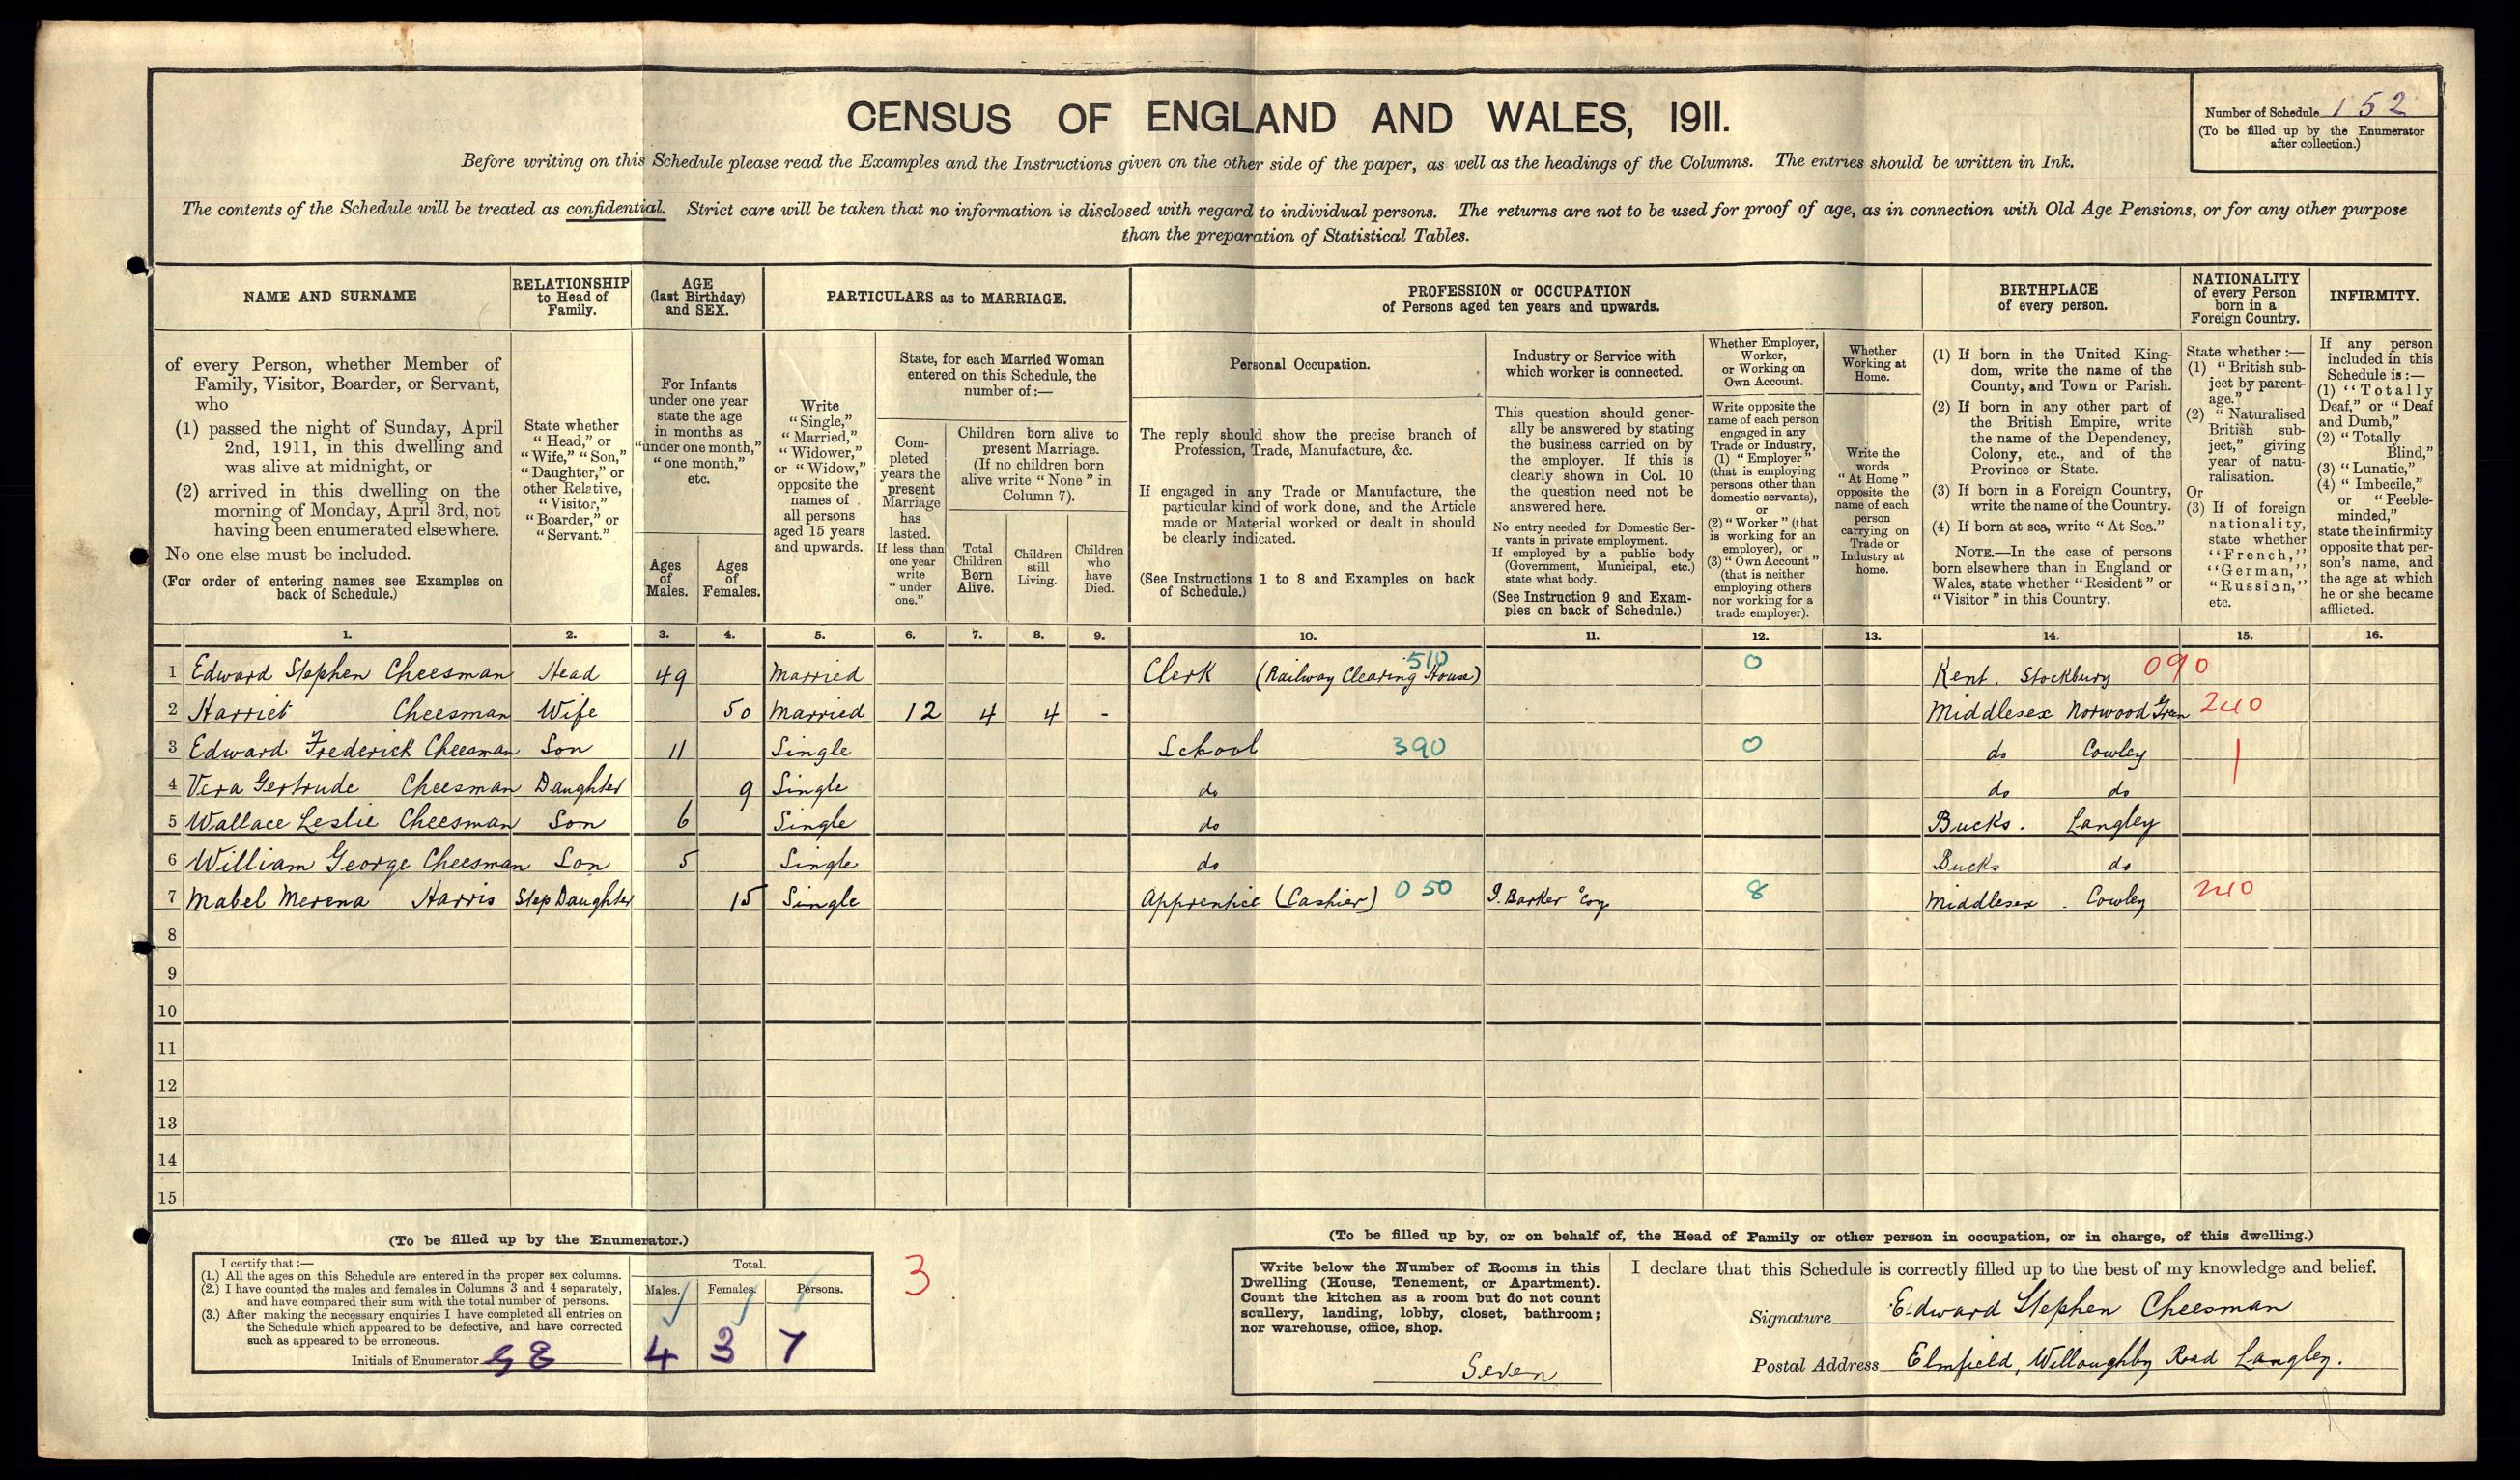 CENSUS OF ENGLAND AND WALES, 1911.
Number of Schedule 152
(To be filled up by the Enumerator
after collection.)
Before writing on this Schedule please read the Examples and the Instructions given on the other side of the paper, as well as the headings of the Columns. The entries should be written in Ink.
The contents of the Schedule will be treated as confidential. Strict care will be taken that no information is disclosed with regard to individual persons. The returns are not to be used for proof of age, as in connection with Old Age Pensions, or for any other purpose
than the preparation of Statistical Tables.
NAME AND SURNAME
RELATIONSHIP
to Head of
Family.
AGE
(last Birthday)
and SEX.
PARTICULARS as to MARRIAGE.
PROFESSION or OCCUPATION
of Persons aged ten years and upwards.
BIRTHPLACE
of every person.
NATIONALITY
of every Person
born in a
Foreign Country.
INFIRMITY.
of every Person, whether Member of
Family, Visitor, Boarder, or Servant,
who
(1) passed the night of Sunday, April
2nd, 1911, in this dwelling and
was alive at midnight, or
(2) arrived in this dwelling on the
morning of Monday, April 3rd, not
having been enumerated elsewhere.
No one else must be included.
(For order of entering names see Examples on
back of Schedule.)
State whether
“Head,” or
“Wife,” “Son,”
“Daughter,” or
other Relative,
“Visitor,”
“Boarder,” or
“Servant.”
For Infants
under one year
state the age
in months as
“under one month,”
“one month,”
etc.
Ages
of
Males.
Ages
of
Females.
Write
“Single,”
“Married,”
“Widower,”
or “Widow,”
opposite the
names of
all persons
aged 15 years
and upwards.
State, for each Married Woman
entered on this Schedule, the
number of:—
Com-
pleted
years the
present
Marriage
has
lasted.
If less than
one year
write
“under
one.”
Children born alive to
present Marriage.
(If no children born
alive write “None” in
Column 7).
Total
Children
Born
Alive.
Children
still
Living.
Children
who
have
Died.
Personal Occupation.
The reply should show the precise branch of
Profession, Trade, Manufacture, &c.
If engaged in any Trade or Manufacture, the
particular kind of work done, and the Article
made or Material worked or dealt in should
be clearly indicated.
(See Instructions 1 to 8 and Examples on back
of Schedule.)
Industry or Service with
which worker is connected.
This question should gener-
ally be answered by stating
the business carried on by
the employer. If this is
clearly shown in Col. 10
the question need not be
answered here.
No entry needed for Domestic Ser-
vants in private employment.
If employed by a public body
(Government, Municipal, etc.)
state what body.
(See Instruction 9 and Exam-
ples on back of Schedule.)
Whether Employer,
Worker,
or Working on
Own Account.
Write opposite the
name of each person
engaged in any
Trade or Industry,
(1) “Employer”
(that is employing
persons other than
domestic servants),
or
(2) “Worker” (that
is working for an
employer), or
(3) “Own Account”
(that is neither
employing others
nor working for a
trade employer).
Whether
Working at
Home.
Write the
words
“At Home”
opposite the
name of each
person
carrying on
Trade or
Industry at
home.
(1) If born in the United King-
dom, write the name of the
County, and Town or Parish.
(2) If born in any other part of
the British Empire, write
the name of the Dependency,
Colony, etc., and of the
Province or State.
(3) If born in a Foreign Country,
write the name of the Country.
(4) If born at sea, write “At Sea.”
NOTE.—In the case of persons
born elsewhere than in England or
Wales, state whether “Resident” or
“Visitor” in this Country.
State whether:—
(1) “British sub-
ject by parent-
age.”
(2) “Naturalised
British sub-
ject,” giving
year of natu-
ralisation.
Or
(3) If of foreign
nationality,
state whether
“French,”
“German,”
“Russian,”
etc.
If any person
included in this
Schedule is:—
(1) “Totally
Deaf,” or “Deaf
and Dumb,”
(2) “Totally
Blind,”
(3) “Lunatic,”
(4) “Imbecile,”
or “Feeble-
minded,”
state the infirmity
opposite that per-
son’s name, and
the age at which
he or she became
afflicted.
1. 2. 3. 4. 5. 6. 7. 8. 9. 10. 11. 12. 13. 14. 15. 16.
1 Edward Stephen Cheesman Head 49 Married Clerk (Railway Clearing House) 510 0 Kent. Stockbury 090
2 Harriet Cheesman Wife 50 Married 12 4 4 - Middlesex Norwood Green 240
3 Edward Frederick Cheesman Son 11 Single School 390 0 do Cowley 1
4 Vera Gertrude Cheesman Daughter 9 Single do do do
5 Wallace Leslie Cheesman Son 6 Single do Bucks. Langley
6 William George Cheesman Son 5 Single do Bucks do
7 Mabel Merena Harris Step Daughter 15 Single Apprentice (Cashier) 050 J. Barker Coy 8 Middlesex. Cowley 240
8
9
10
11
12
13
14
15
(To be filled up by the Enumerator.)
I certify that:—
(1.) All the ages on this Schedule are entered in the proper sex columns.
(2.) I have counted the males and females in Columns 3 and 4 separately,
and have compared their sum with the total number of persons.
(3.) After making the necessary enquiries I have completed all entries on
the Schedule which appeared to be defective, and have corrected
such as appeared to be erroneous.
Initials of Enumerator GE
Total.
Males. Females. Persons.
4 3 7
3
(To be filled up by, or on behalf of, the Head of Family or other person in occupation, or in charge, of this dwelling.)
Write below the Number of Rooms in this
Dwelling (House, Tenement, or Apartment).
Count the kitchen as a room but do not count
scullery, landing, lobby, closet, bathroom;
nor warehouse, office, shop.
Seven
I declare that this Schedule is correctly filled up to the best of my knowledge and belief.
Signature Edward Stephen Cheesman
Postal Address Elmfield, Willoughby Road Langley.